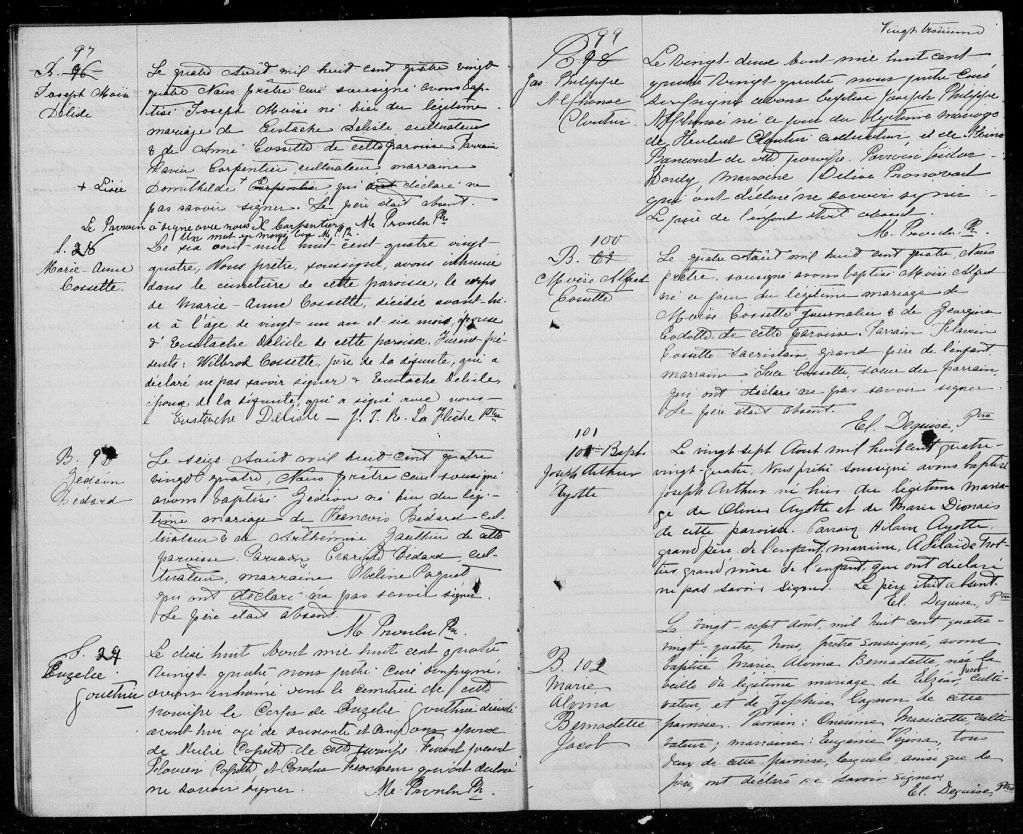 97
B. 96
Joseph Moïse
Delisle
Le quatre Août mil huit cent quatre vingt
quatre Nous prêtre curé soussigné avons bap
tisé Joseph Moïse né hier du légitime
mariage de Eustache Delisle, cultivateur
& de Anné Cossette de cette paroisse Parrain
Xavier Carpentier cultivateur, marraine
+ Livée
Domithilde Carpentier qui ont déclaré ne
pas savoir signer. Le père était absent.
Le Parrain a signé avec nous X Carpentier M. Proulx Ptr
Un mot en marge bon M. P.
S. 28
Marie-Anne
Cossette.
Le six août mil huit cent quatre vingt-
quatre, Nous prêtre, soussigné, avons inhumé
dans le cimetière de cette paroisse, le corps
de Marie-Anne Cossette, décédée avant-hi-
er à l'âge de vingt-un an et six mois, épouse
d'Eustache Delisle de cette paroisse. Furent pré-
sents: Wilbrod Cossette, père de la défunte, qui a
déclaré ne pas savoir signer & Eustache Delisle,
époux de la défunte, qui a signé avec nous—
Eustache Delisle— J. T. R. La Flèche Ptre
B. 98
Gédéon
Bédard
Le seize Août mil huit cent quatre
vingt quatre, Nous prêtre curé soussigné
avons baptisé Gédéon né hier du légi-
time mariage de François Bédard cul
tivateur & de Arthémise Gauthier de cette
paroisse. Parrain Bédard, cul
tivateur, marraine Obéline Paquet
qui ont déclaré ne pas savoir signer.
Le père était absent.
M. Proulx Ptr.
S. 29
Euzebie
Gouthier
Le dix huit Aout mil huit cent quatre
vingt quatre nous prêtre curé soussigné,
avons inhumé dans le cimetière de cette
paroisse le Corps de Euzebie Gouthier décédé
avant hier agé de soixante et cinq ans, epouse
de de cette paroisse. Furent présent
Flavien et qui ont déclaré
ne savoir signer. M. Proulx Ptr.
Vingt troisieme
99
B 98
Jos Philippe
Alphonse
Cloutier
Le vingt deux Aout mil huit cent
quatre vingt quatre nous prêtre curé
soussigné avons baptisé Joseph Philippe
Alphonse né ce jour du légitime mariage
de Heubert Cloutier cultivateur et de
de cette paroisse. Parrain Isidor
marraine Délise Pronovost
qui ont déclaré ne savoir signer
Le père de l'enfant était absent
M. Proulx Ptr.
100
B.
Moïse Alfred
Cossette
Le quatre Août mil huit cent quatre, Nous
prêtre soussigné avons baptisé Moïse Alfred
né ce jour du légitime mariage de
Moïse Cossette journalier & de Georgina
Cadotte de cette paroisse Parrain Flavien
Cossette Sacristain, grand père de l'enfant,
marraine Luce Cossette, soeur du parrain,
qui ont déclaré ne pas savoir signer.
Le père était absent.
El. Deguise, Ptre
101
Bapt.
Joseph Arthur
Ayotte
Le vingt sept Aout mil huit cent quatre-
vingt-quatre, Nous prêtre soussigné avons baptisé
Joseph Arthur né hier du légitime maria-
ge de Olivier Ayotte et de Marie Dionais
de cette paroisse. Parrain Hilain Ayotte
grand père de l'enfant, marraine, Adélaïde Trot-
tier grand mère de l'enfant, qui ont déclaré
ne pas savoir signer. Le père était absent.
El. Deguise, Ptre
B 102
Marie
Alvina
Bernadette
Jacob
Le vingt-sept Aout, mil huit cent quatre-
vingt-quatre, Nous, prêtre soussigné, avons
baptisé Marie Alvina Bernadette, née la
veille du légitime mariage de Elzéar Jacob culti-
vateur, et de Zéphise Gagnon de cette
paroisse. Parrain: Onésime Massicotte, culti-
vateur; marraine: Eugénie Vézina, tous
deux de cette paroisse, lesquels ainsi que le
père, ont déclaré ne savoir signer.
El. Deguise, Ptre